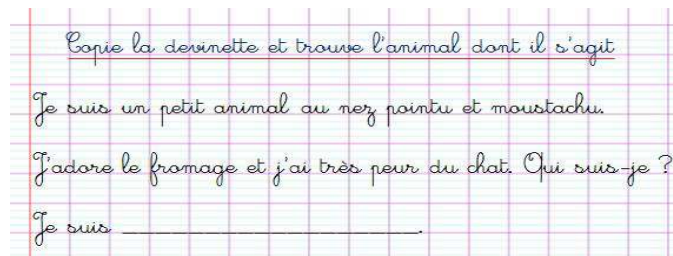 Copie la devinette et trouve l'animal dont il s'agit
Je suis un petit animal au nez pointu et moustachu.
J'adore le fromage et j'ai très peur du chat. Qui suis-je ?
Je suis ______________________.